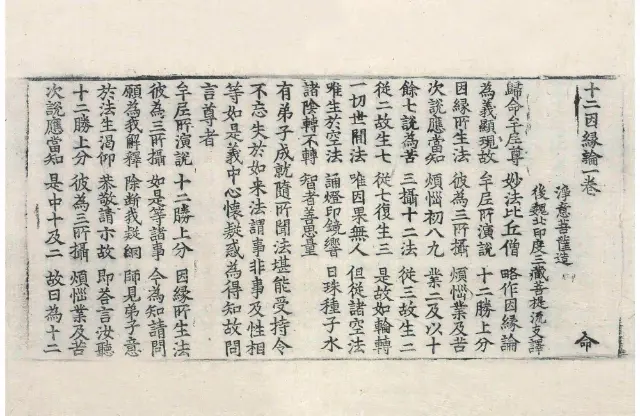 十二因縁論一卷 命
淨意菩薩造
後魏北印度三藏菩提流支譯
歸命牟尼尊 妙法比丘僧 略作因縁論
為義顯現故 牟尼所演說 十二勝上分
因縁所生法 彼為三所攝 煩惱業及苦
次說應當知 煩惱初八九 業二及以十
餘七說為苦 三攝十二法 從三故生二
從二故生七 從七復生三 是故如輪轉
一切世間法 唯因果無人 但從諸空法
唯生於空法 誦燈印鏡響 日珠種子水
諸陰轉不轉 智者善思量
有弟子成就隨所聞法堪能受持令
不忘失於如來法謂事非事及性相
等如是義中心懷疑惑為得知故問
言尊者
牟尼所演說 十二勝上分 因縁所生法
彼為三所攝 如是等諸事 今為知請問
願為我解釋 除斷我疑網 師見弟子意
於法生渴仰 恭敬請亦故 即荅言汝聽
十二勝上分 彼為三所攝 煩惱業及苦
次說應當知 是中十及二 故曰為十二